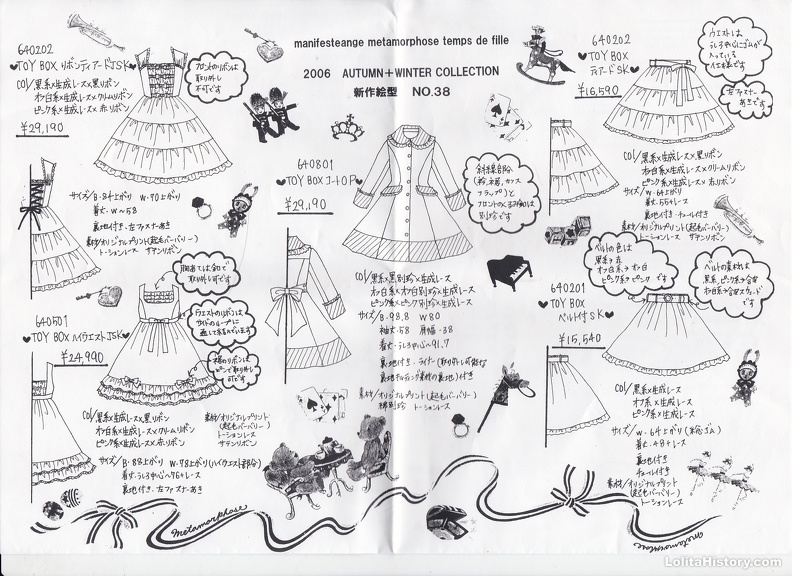 manifesteange metamorphose temps de fille
2006 AUTUMN+WINTER COLLECTION
新作絵型 NO.38
640202
♥TOY BOX リボンティアードJSK♥
COL/黒系×生成レース×黒リボン
オフ白系×生成レース×クリームリボン
ピンク系×生成レース×赤リボン
¥29,190
フロントのリボンは
取り外し
不可です
サイズ/B・84上がり W・70上がり
着丈・W〜58
裏地付き・左ファスナーあき
素材/オリジナルプリント(起毛バーバリー)
トーションレース サテンリボン
640501
♥TOY BOX ハイウエストJSK♥
¥24,990
胸あては釦で
取り外し可です
ウエストのリボンは
サイドのループに
通して結んでいます
裾のリボンは
ピンで取り外し
可です
COL/黒系×生成レース×黒リボン
オフ白系×生成レース×クリームリボン
ピンク系×生成レース×赤リボン
素材/オリジナルプリント
(起毛バーバリー)
トーションレース
サテンリボン
サイズ/B・88上がり W・78上がり(ハイウエスト部分)
着丈・うしろ中心〜76+レース
裏地付き・左ファスナーあき
640801
♥TOY BOXコートOP♥
¥29,190
斜線部分
(衿、裾、カフス
フラップ)と
フロントのくるみ釦は
別珍です
COL/黒系×黒別珍×生成レース
オフ白系×オフ白別珍×生成レース
ピンク系×ピンク別珍×生成レース
サイズ/B・98.8 W80
袖丈・58 肩幅・38
着丈・うしろ中心〜91.7
裏地付き・ライナー(取り外し可能な
裏地キルティング素材の裏地)付き
素材/オリジナルプリント(起毛バーバリー)
綿別珍 トーションレース
640202
♥TOY BOX
ティアードSK♥
¥16,590
ウエストは
うしろ中心にゴムが
入っている
仕様です
左ファスナー
あきです
COL/黒系×生成レース×黒リボン
オフ白系×生成レース×クリームリボン
ピンク系×生成レース×赤リボン
サイズ/W・64上がり
着丈・55+レース
裏地付き・チュール付き
素材/オリジナルプリント(起毛バーバリー)
トーションレース サテンリボン
ベルトの色は
黒系→赤
オフ白系→オフ白
ピンク系→ピンク です
ベルトの素材は
黒系,ピンク系→合皮
オフ白系→合皮スウェード
です
640201
♥TOY BOX
ベルト付SK♥
¥15,540
COL/黒系×生成レース
オフ系×生成レース
ピンク系×生成レース
サイズ/W・64上がり(本体ゴム)
着丈・48+レース
裏地付き
チュール付き
素材/オリジナルプリント
(起毛バーバリー)
トーションレース
metamorphose
metamorphose
LolitaHistory.com